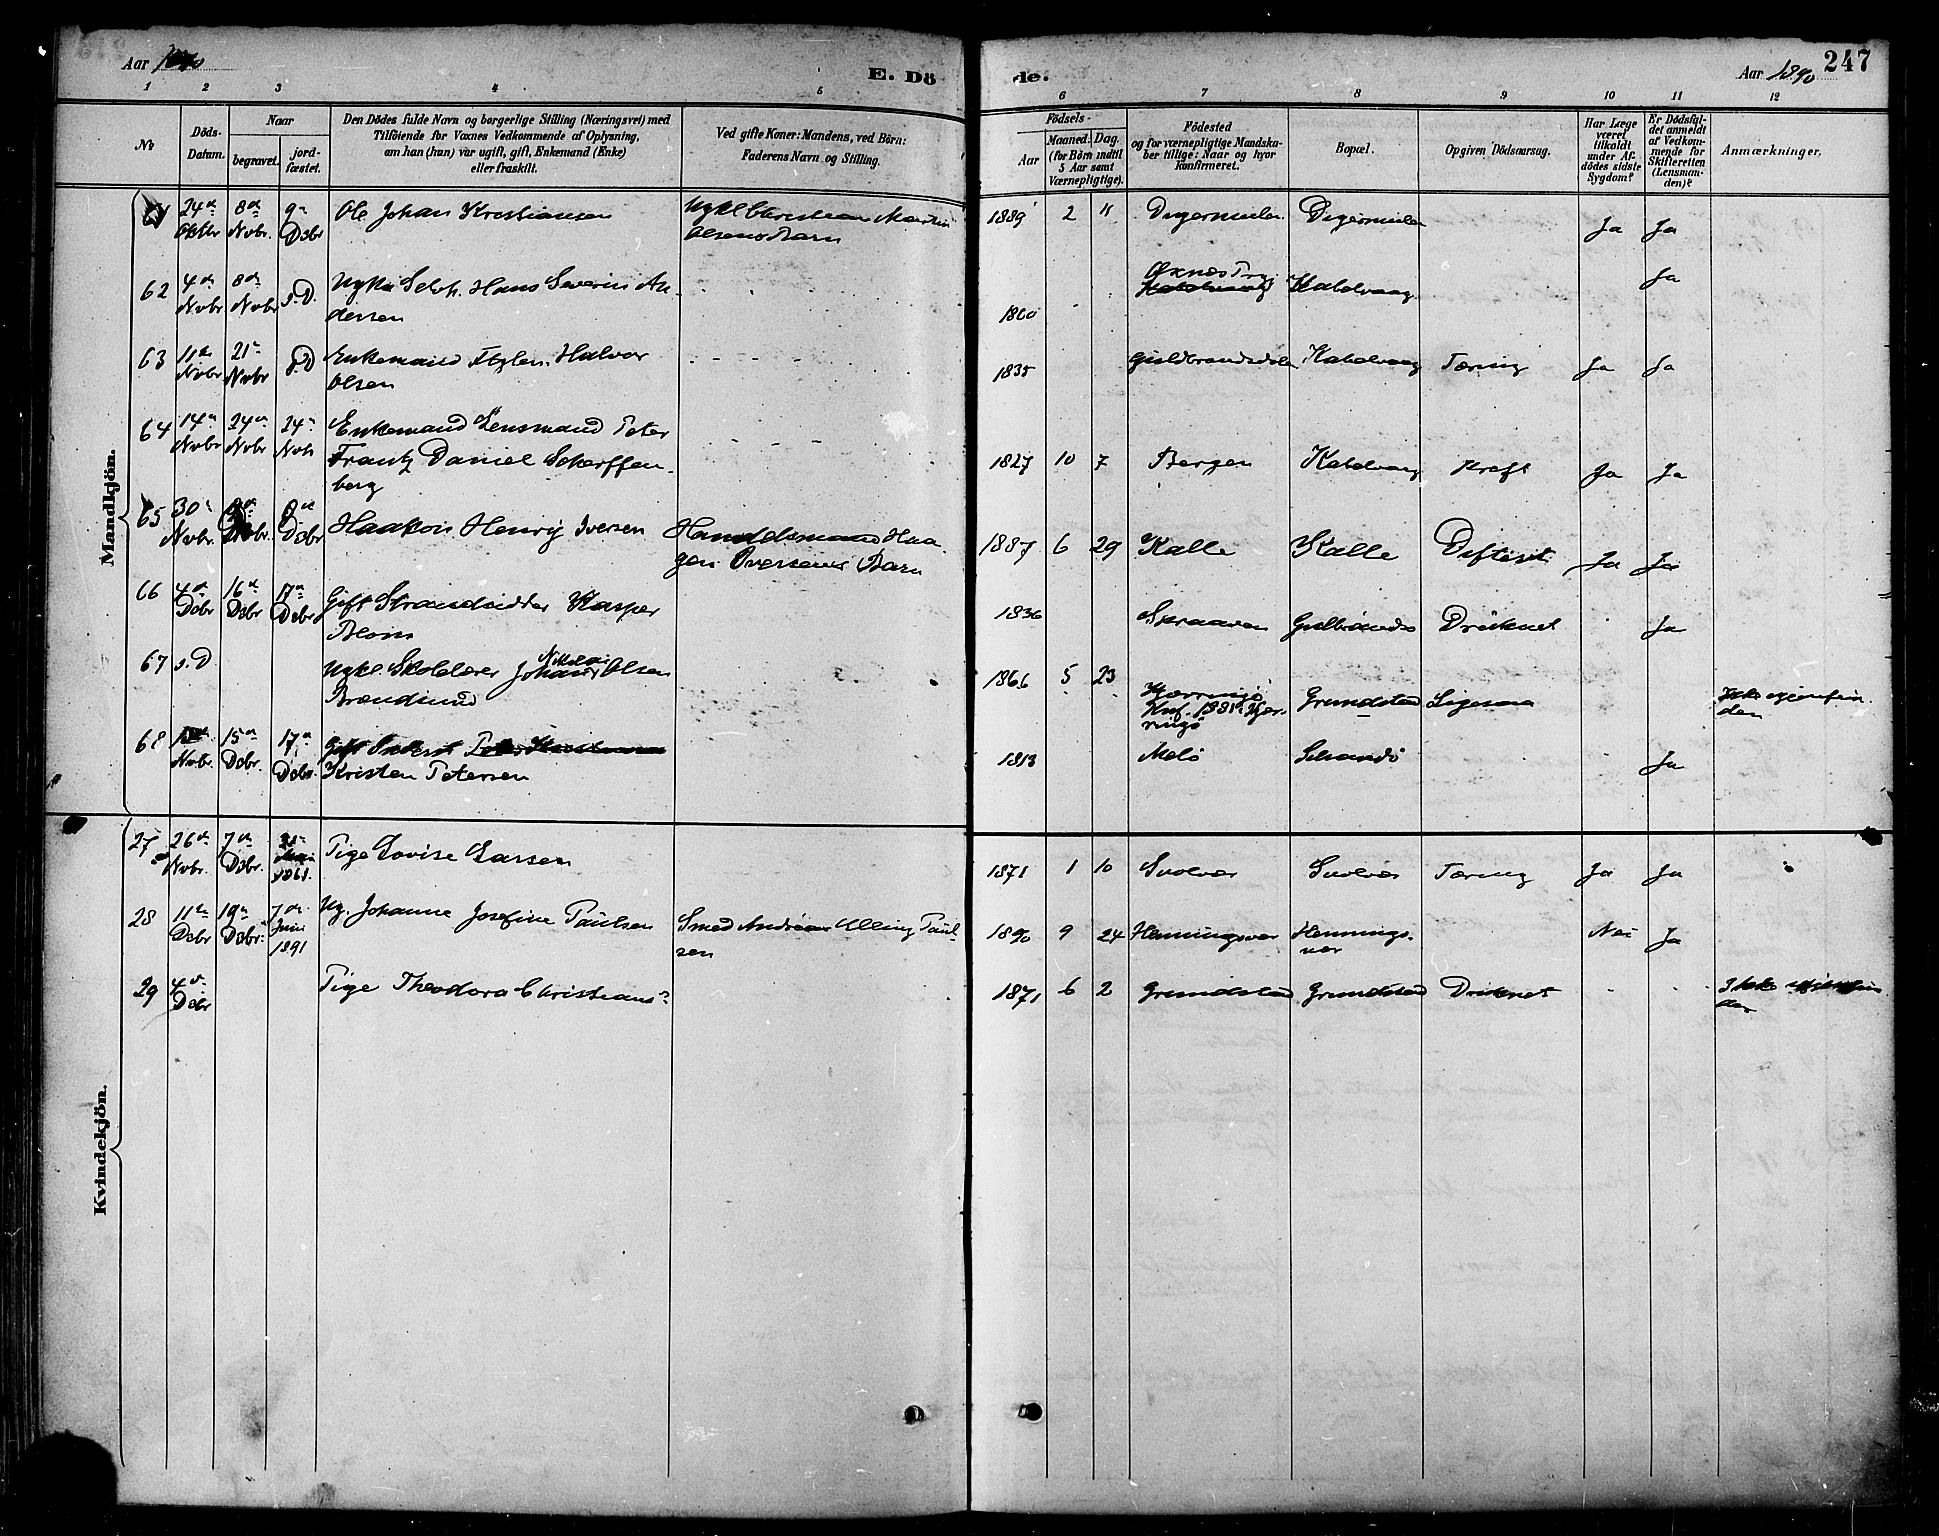 Aar 1890
E. Dö
de.
Aar 1890
247
1 2 3 4 5 6 7 8 9 10 11 12
No
Döds-
Datum.
Naar
begravet.
jord-
fæstet.
Den Dödes fulde Navn og borgerlige Stilling (Næringsvei) med
Tilföiende for Voxnes Vedkommende af Oplysning,
om han (hun) var ugift, gift, Enkemand (Enke)
eller fraskilt.
Ved gifte Koner: Mandens, ved Börn:
Faderens Navn og Stilling.
Födsels-
Aar
Maaned.
Dag.
(for Börn indtil
5 Aar samt
Værnepligtige).
Födested
og for værnepligtige Mandska-
ber tillige: Naar og hvor
konfirmeret.
Bopæl.
Opgiven Dödsaarsag.
Har Læge
været
tilkaldt
under Af-
dödes sidste
Sygdom?
Er Dödsfal-
det anmeldt
af Vedkom-
mende for
Skifteretten
(Lensman-
den)?
Anmærkninger.
Mandkjön.
24de Oktbr 8de Nvbr. 9de Dcbr Ole Johan Kristiansen
Ugkl Christian Martin
Olsens Barn
1889 2 11 Digermulen Digermulen Ja Ja
62 4de Nvbr 8de Nvbr s.D. Ugka Selvh. Hans Severin An-
dersen
1860 Øxnes Prg. Kabelvaag Ja
63 11te Nvbr 21de Nvbr s.D Enkemand Halvor
Olsen
1835 Guldbrandsdalen Kabelvaag Tæring Ja Ja
64 14de Nvbr 24de Nvbr 24de Nvbr Enkemand Lensmand Peter
Frantz Daniel Scharffen-
berg
1827 10 7 Bergen Kabelvaag Kræft Ja Ja
65 30te Nvbr. Dcbr. 9de Dcbr Haakon Henry Iversen
Handelsmand Haa-
gen Iversens Barn
1887 6 29 Kalle Kalle Difterit Ja Ja
66 4de Dcbr 16de Dcbr 17de Dcbr Gift Strandsidder Kasper
Blom
1836 Skraaven Gulbrandsö Druknet Ja
67 s.D Ugkl. Skolelærer Johan Nikolai Olsen
Brændsund
1866 5 23 Kjerringö
Knf. 1881 Kjer-
ringö
Grundstad Ligesaa Ikke igjenfun-
den
68 Nvbr. 15de Dcbr. 17de Dcbr. Gift Inderst
Kristen Petersen
1813 Melö Ja
Kvindekjön.
27 26de Nvbr. 7de Dcbr. Pige Lovise Larsen
1871 1 10 Svolvær Svolvær Tæring Ja Ja
28 11te Dcbr 19de Dcbr. 7de Juni 1891 Ug. Johanne Josefine Paulsen
Smed Andreas Elling Paul-
sen
1890 9 24 Henningsvær Hennings-
vær
Nei Ja
29 4de Dcbr Pige Theodora Christians.
1871 6 2 Grundstad Grundstad Druknet Ikke igjenfun-
den